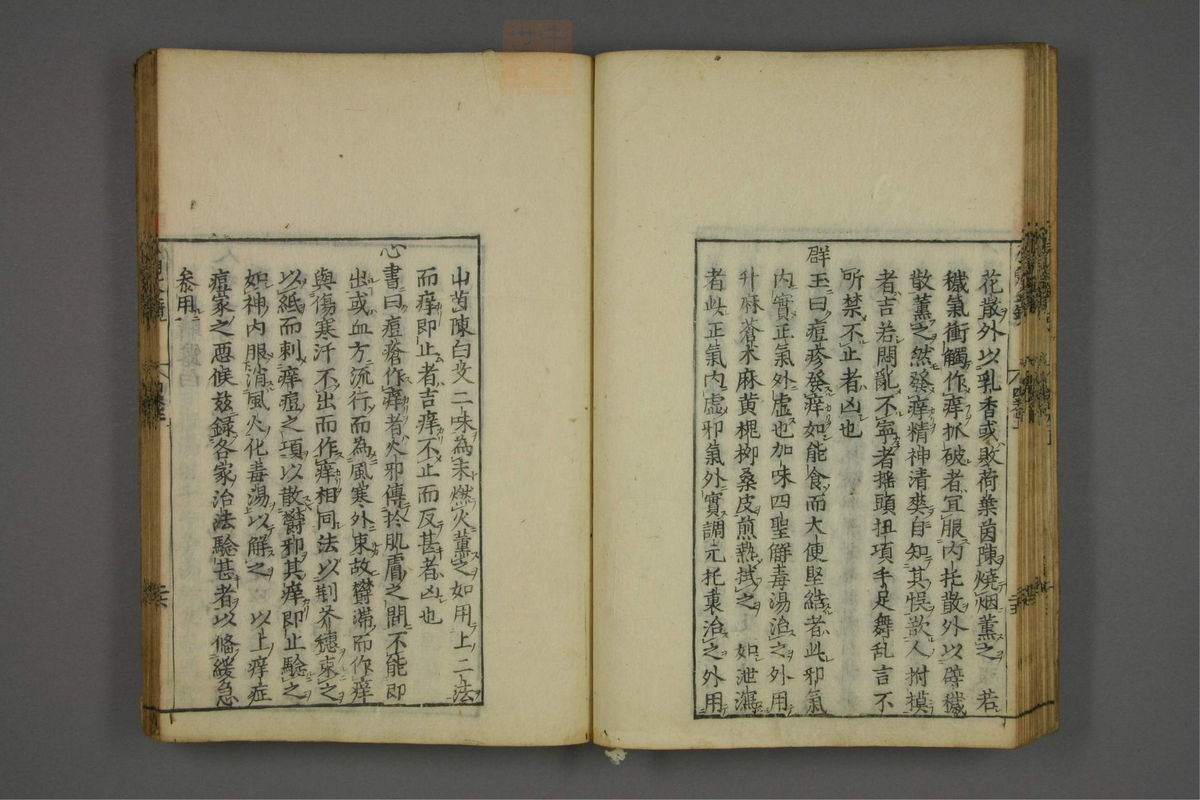 花散外以乳香或敗荷葉茵陳燒烟薰之　若
穢氣衝觸作痒抓破者宜服内托散外以辟穢
散薰之然發痒精神清爽自知其悞歀人拊摸
者吉若悶亂不寧者揺頭扭項手足舞乱言不
所禁不止者凶也
群玉曰痘疹發痒如能食而大便堅結者此邪氣
内實正氣外虚也加味四聖觧毒湯治之外用
升麻蒼朮麻黄槐栁桑皮煎熱拭之　如泄瀉
者此正氣内虚邪氣外實調元托裏治之外用
山茵陳白艾二味為末燃火薰之如用上二法
而痒即止者吉痒不止而反甚者凶也
心書曰痘瘡作痒者火邪傳於肌膚之間不能即
出或血方流行而為風寒外束故欝滞而作痒
與傷寒汗不出而作痒相同法以荆芥穂束之
以紙而刺痒痘之項以散欝邪其痒即止驗之
如神内服消風火化毒湯以解之　以上痒症
痘家之悪候茲録各家治法驗甚者以俻緩急
叅用